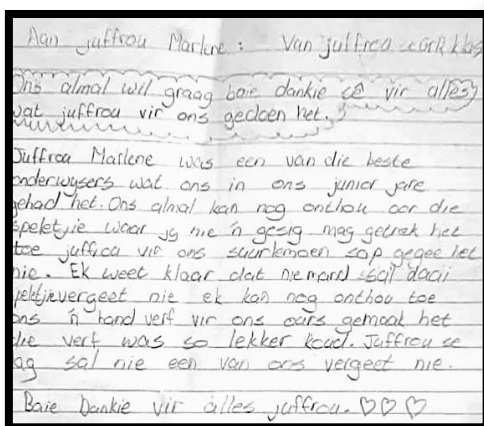 Aan juffrou Marlene: Van juffrou se Gr.R klas
Ons almal wil graag baie dankie sê vir alles
wat juffrou vir ons gedoen het.
Juffrou Marlene was een van die beste
onderwysers wat ons in ons junior jare
gehad het. Ons almal kan nog onthou oor die
speletjie waar jy nie 'n gesig mag getrek het
toe juffrou vir ons suurlemoen sop gegee het
nie. Ek weet klaar dat niemand sal daai
speletjie vergeet nie ek kan nog onthou toe
ons 'n hand verf vir ons ouers gemaak het
die verf was so lekker koud. Juffrou se
lag sal nie een van ons vergeet nie.
Baie Dankie vir alles juffrou. ♡♡♡